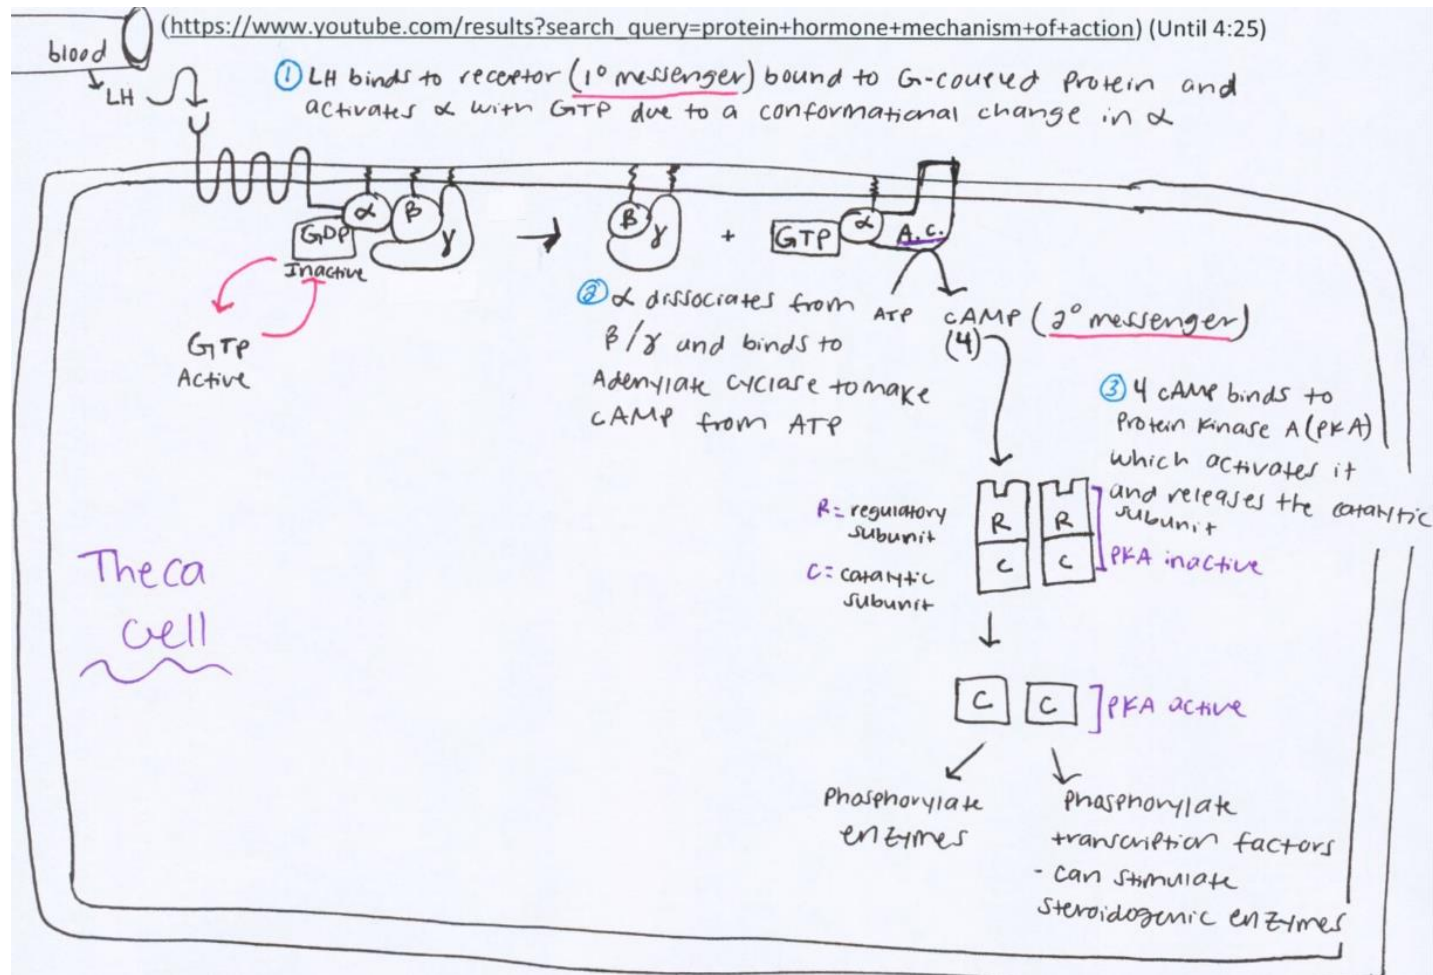 (https://www.youtube.com/results?search_query=protein+hormone+mechanism+of+action) (Until 4:25)
blood
LH
① LH binds to receptor (1° messenger) bound to G-coupled protein and
activates α with GTP due to a conformational change in α
α
β
γ
GDP
Inactive
GTP
Active
β
γ
+
GTP
α
A.C.
② α dissociates from
β/γ and binds to
Adenylate cyclase to make
cAMP from ATP
ATP
cAMP (2° messenger)
(4)
③ 4 cAMP binds to
Protein Kinase A (PKA)
which activates it
and releases the catalytic
subunit
R= regulatory
subunit
C= catalytic
subunit
R
R
C
C
PKA inactive
Theca
cell
C
C
PKA active
Phosphorylate
enzymes
Phosphorylate
transcription factors
- can stimulate
steroidogenic enzymes